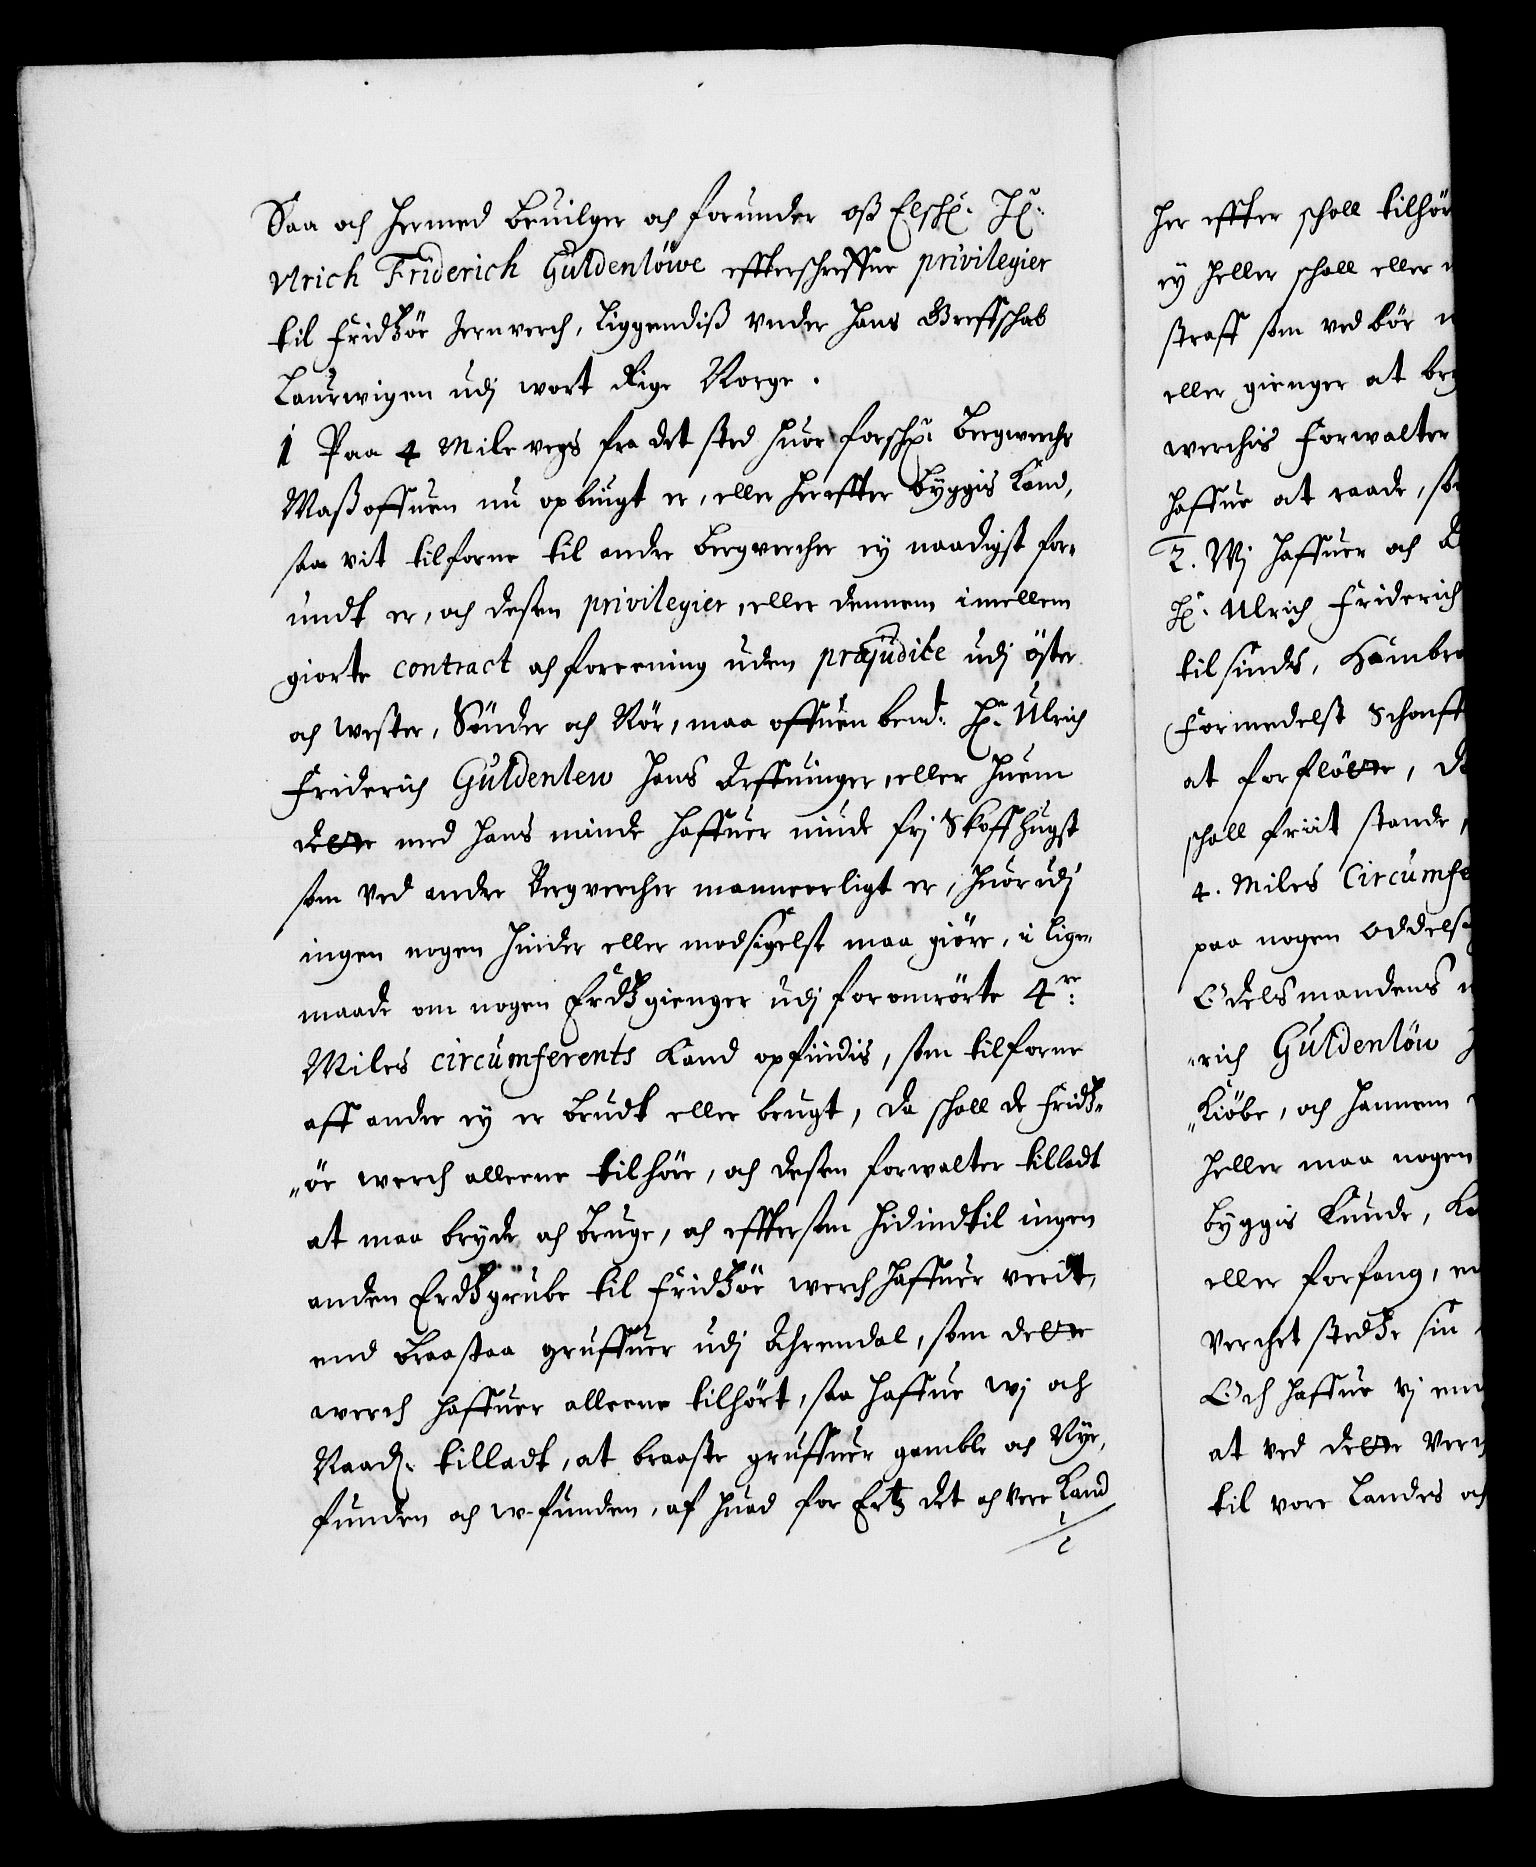 Saa och hermed bevilger och forunder oß Elsch: Hr:
Vlrich Friderich Guldenlöwe effterschreffne privilegier
til Fridtzör Jernverch, liggendiß vnder hans Greffschab
Laurwigen udj wort Rige Norge.
1 Paa 4 Mile vegs fra det sted huor forschr: bergwerchs
Maßoffuen nu opbugt er, eller hereffter byggis kand,
saa vit tilforne til andre bergvercher ey naadigst for-
undt er, och desen privilegier, eller dennem imellem
giorte contract och foreening uden præjuditz udj öster
och wester, Sönder och Nör, maa offuenbend: Hr: Ulrich
Friderich Guldenlew hans Arffuinger, eller huem
dette med hans minde haffuer niude frj Skoffhugst
som ved andre Bergvercher manneerligt er, huorudj
ingen nogen hinder eller modsigelse maa giöre, i lige-
maade om nogen Erdtzgienger udj foromrörte 4re:
Miles circumferents kand opfindis, som tilforne
aff andre ey er brudt eller brugt, da schall de Fridtz-
"ör werch alleene tilhöre, och desen forwalter tilladt
at maa bryde och bruge, och efftersom hidindtil ingen
anden Erdtzgrube til Fridtzör werch haffuer verit,
end Braastaa gruffuer udj Ahrendal, som dette
werch haffuer alleene tilhört, saa haffue wj och
Naadh: tilladt, at braaste gruffuer gamble och Nye,
funden och w-funden, af huad for Ertz det och vere kand
her effter schall tilhör
ey heller schall eller
straff som ved bör
eller gienger at bry
werchis Forwalter
haffue at raade, so
2. Wj haffuer och
Hr: Ulrich Friderich
til sinds,
Formedelst
at forflötte, d
schall friit stande,
4. Miles Circumfe
paa nogen Oddels
Odelsmandens
"rich Guldenlöw
"Kiöbe, och hannem
heller maa nogen
byggis kunde,
eller forfang, en
Verchet stedtze sin
Och haffue vj
at ved dette Verc
til vore Landes och